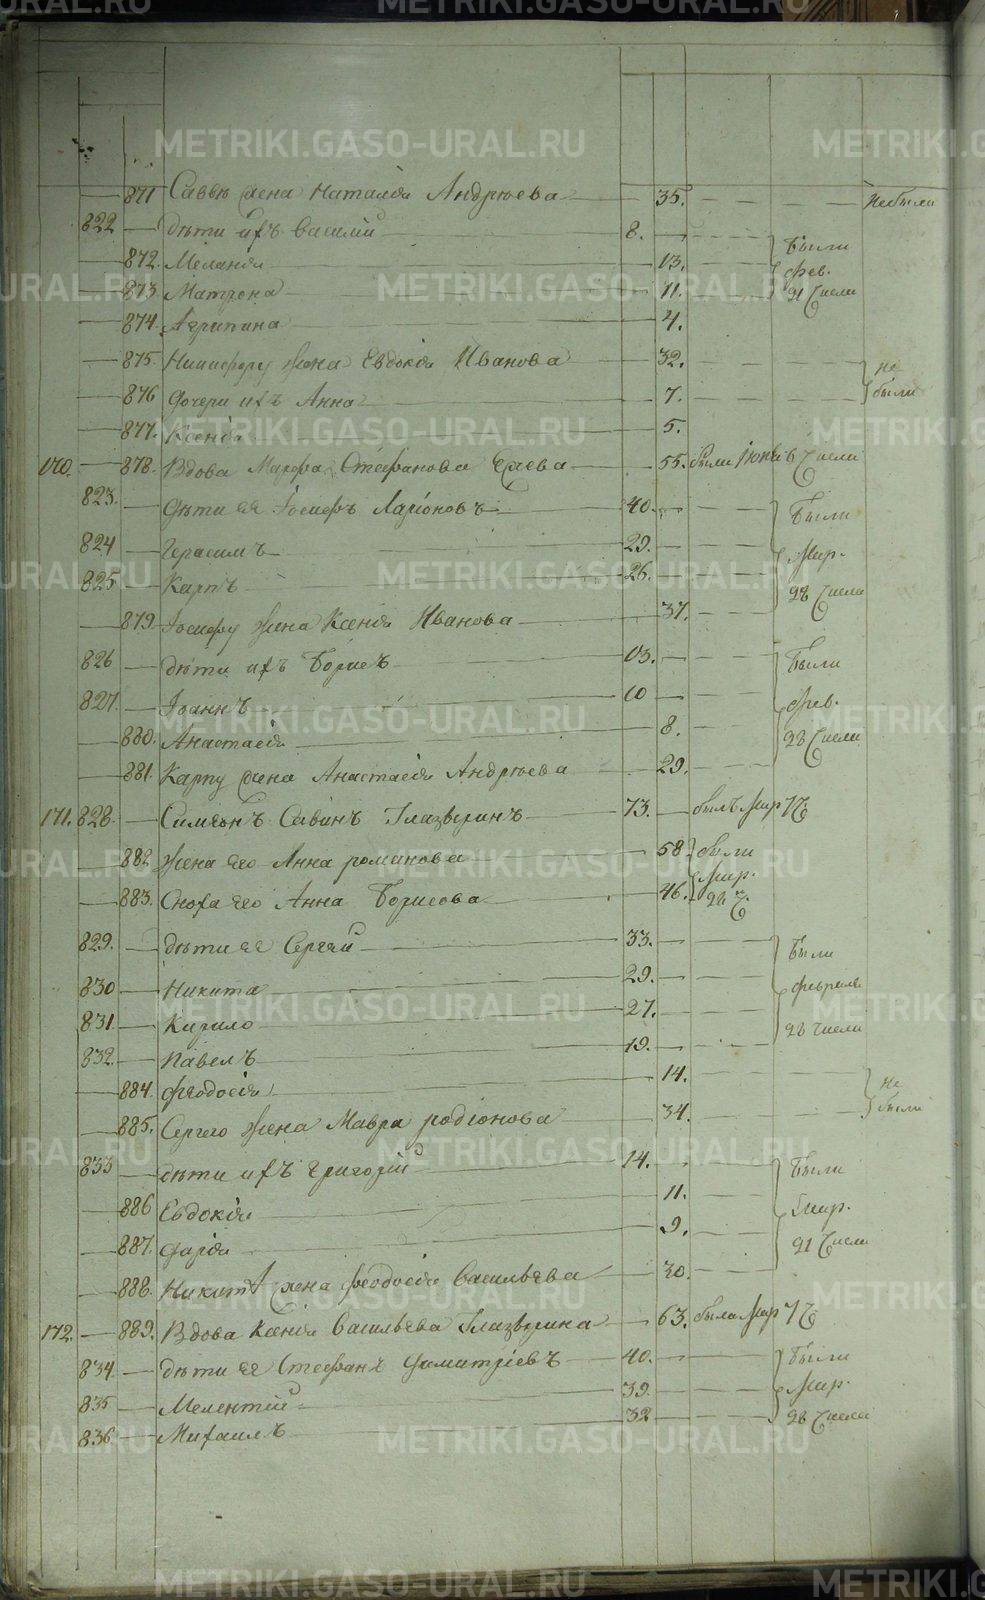 871 Савве жена Наталия Андреева 35. не были
822 дети ихъ Василий 8. были
872. Мелания 13. фев.
873 Матрона 11. 21 числа
874. Агрипина 4.
875 Никифору жена Евдокия Иванова 32. не
876 дочери ихъ Анна 7. были
877. Ксения 5.
170. 878. Вдова Марфа Стефанова 55. были 6 числа
823. дети ея Іосифъ Ларіоновъ 40. были
824 Герасимъ 29. мар.
825 Карпъ 26. 28 числа
879 Іосифу жена Ксения Иванова 37.
826 дети ихъ Борисъ 13. были
827. Іоаннъ 10 фев.
880. Анастасія 8. 28 числа
881. Карпу жена Анастасия Андреева 29.
171. 828. Симеонъ Савинъ Глазыринъ 73. былъ мар 7 ч.
882 жена его Анна романова 58 были мар.
883. Сноха его Анна Борисова 46. 28 ч.
829. дети ея Сергей 33. были
830 Никита 29. февраля
831 Кирило 27. 28 числа
832. Павелъ 19.
884. Феодосія 14. не
885. Сергею жена Мавра родіонова 34. были
833 дети ихъ Григорій 14. были
886 Евдокія 11. мар.
887. Дарія 9. 21 числа
888. Никите жена Феодосія Васильева 30.
172. 889. Вдова Ксенія Васильева Глазырина 63. была мар 7 ч
834. дети ея Стефанъ Димитріевъ 40. были
835 Мелентій 39. мар.
836 Михаилъ 32 28 числа